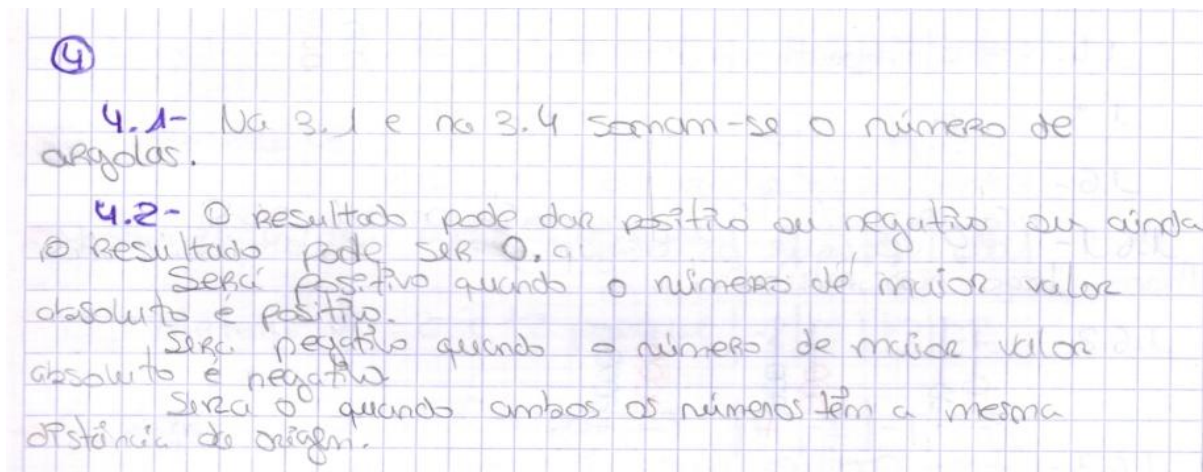 4
4.1- Na 3.1 e na 3.4 somam-se o número de
argolas.
4.2- O resultado pode dar positivo ou negativo ou ainda
o resultado pode ser 0.
Será positivo quando o número de maior valor
absoluto é positivo.
Será negativo quando o número de maior valor
absoluto é negativo
Será 0 quando ambos os números têm a mesma
distância da origem.